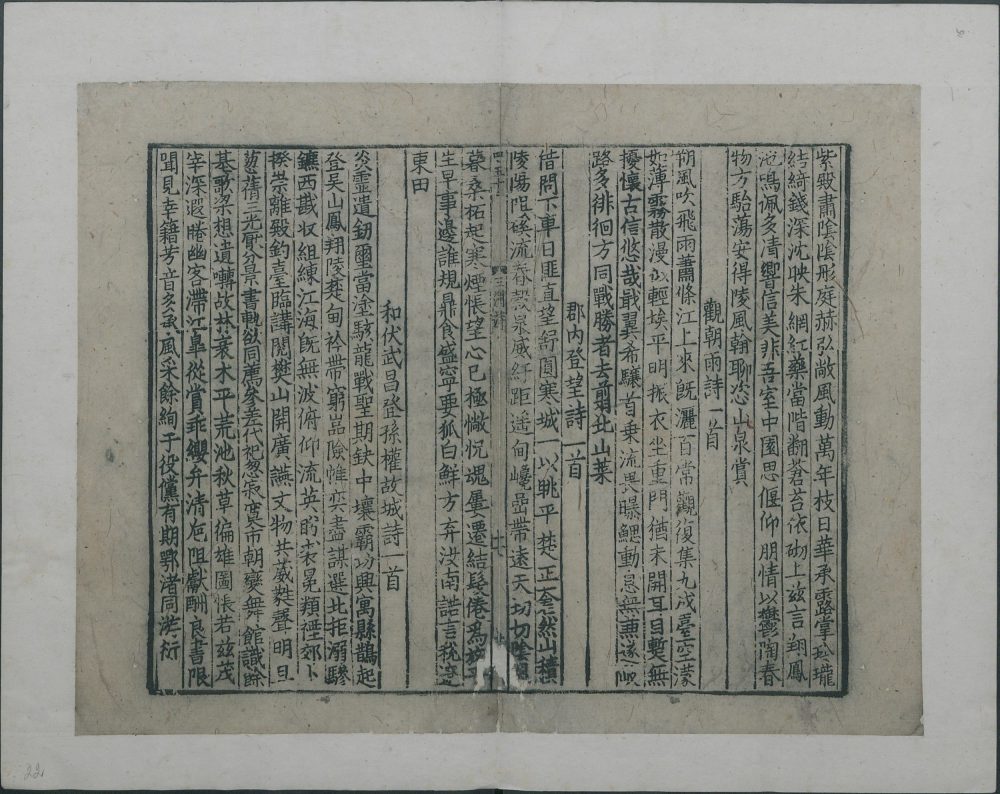 紫殿肅陰陰彤庭赫弘敞風動萬年枝日華承露掌玲瓏
結綺錢深沈映朱網紅藥當階翻蒼苔依砌上茲言翔鳳
池鳴珮多清響信美非吾室中園思偃仰朋情以鬱陶春
物方駘蕩安得陵風翰聊恣山泉賞
觀朝雨詩一首
朔風吹飛雨蕭條江上來旣灑百常觀復集九成臺空濛
如薄霧散漫似輕埃平明振衣坐重門猶未開耳目暫無
擾懷古信悠哉戢翼希驤首乘流畏曝鰓動息無兼遂岐
路多徘徊方同戰勝者去翦北山萊
郡内登望詩一首
借問下車日匪直望舒圓寒城一以眺平楚正蒼然山積
陵陽阻溪流春穀泉威紆距遥甸巉嵒帶遠天切切陰風
暮桑柘起寒煙悵望心已極惝怳魂屢遷結髮倦為旅平
生早事邊誰規鼎食盛寧要狐白鮮方弃汝南諾言稅遼
東田
和伏武昌登孫權故城詩一首
炎靈遺劒璽當塗駭龍戰聖期缺中壤霸功興寓縣鵲起
登吴山鳳翔陵楚甸衿帶窮嵓險帷弈盡謀選北拒溺驂
鑣西龕収組練江海旣無波俯仰流英盼裘冕類禋郊卜
揆崇離殿釣臺臨講閱樊山開廣讌文物共葳蕤聲明且
葱蒨三光厭分景書軌欲同薦參差代祀忽寂寞市朝變舞館識餘
基歌梁想遺囀故林衰木平荒池秋草徧雄圖悵若茲茂
宰深遐睠幽客滯江皋從賞乖纓弁清巵阻獻酬良書限
聞見幸籍芳音多承風采餘絢于役儻有期鄂渚同游衍
三謝詩
22